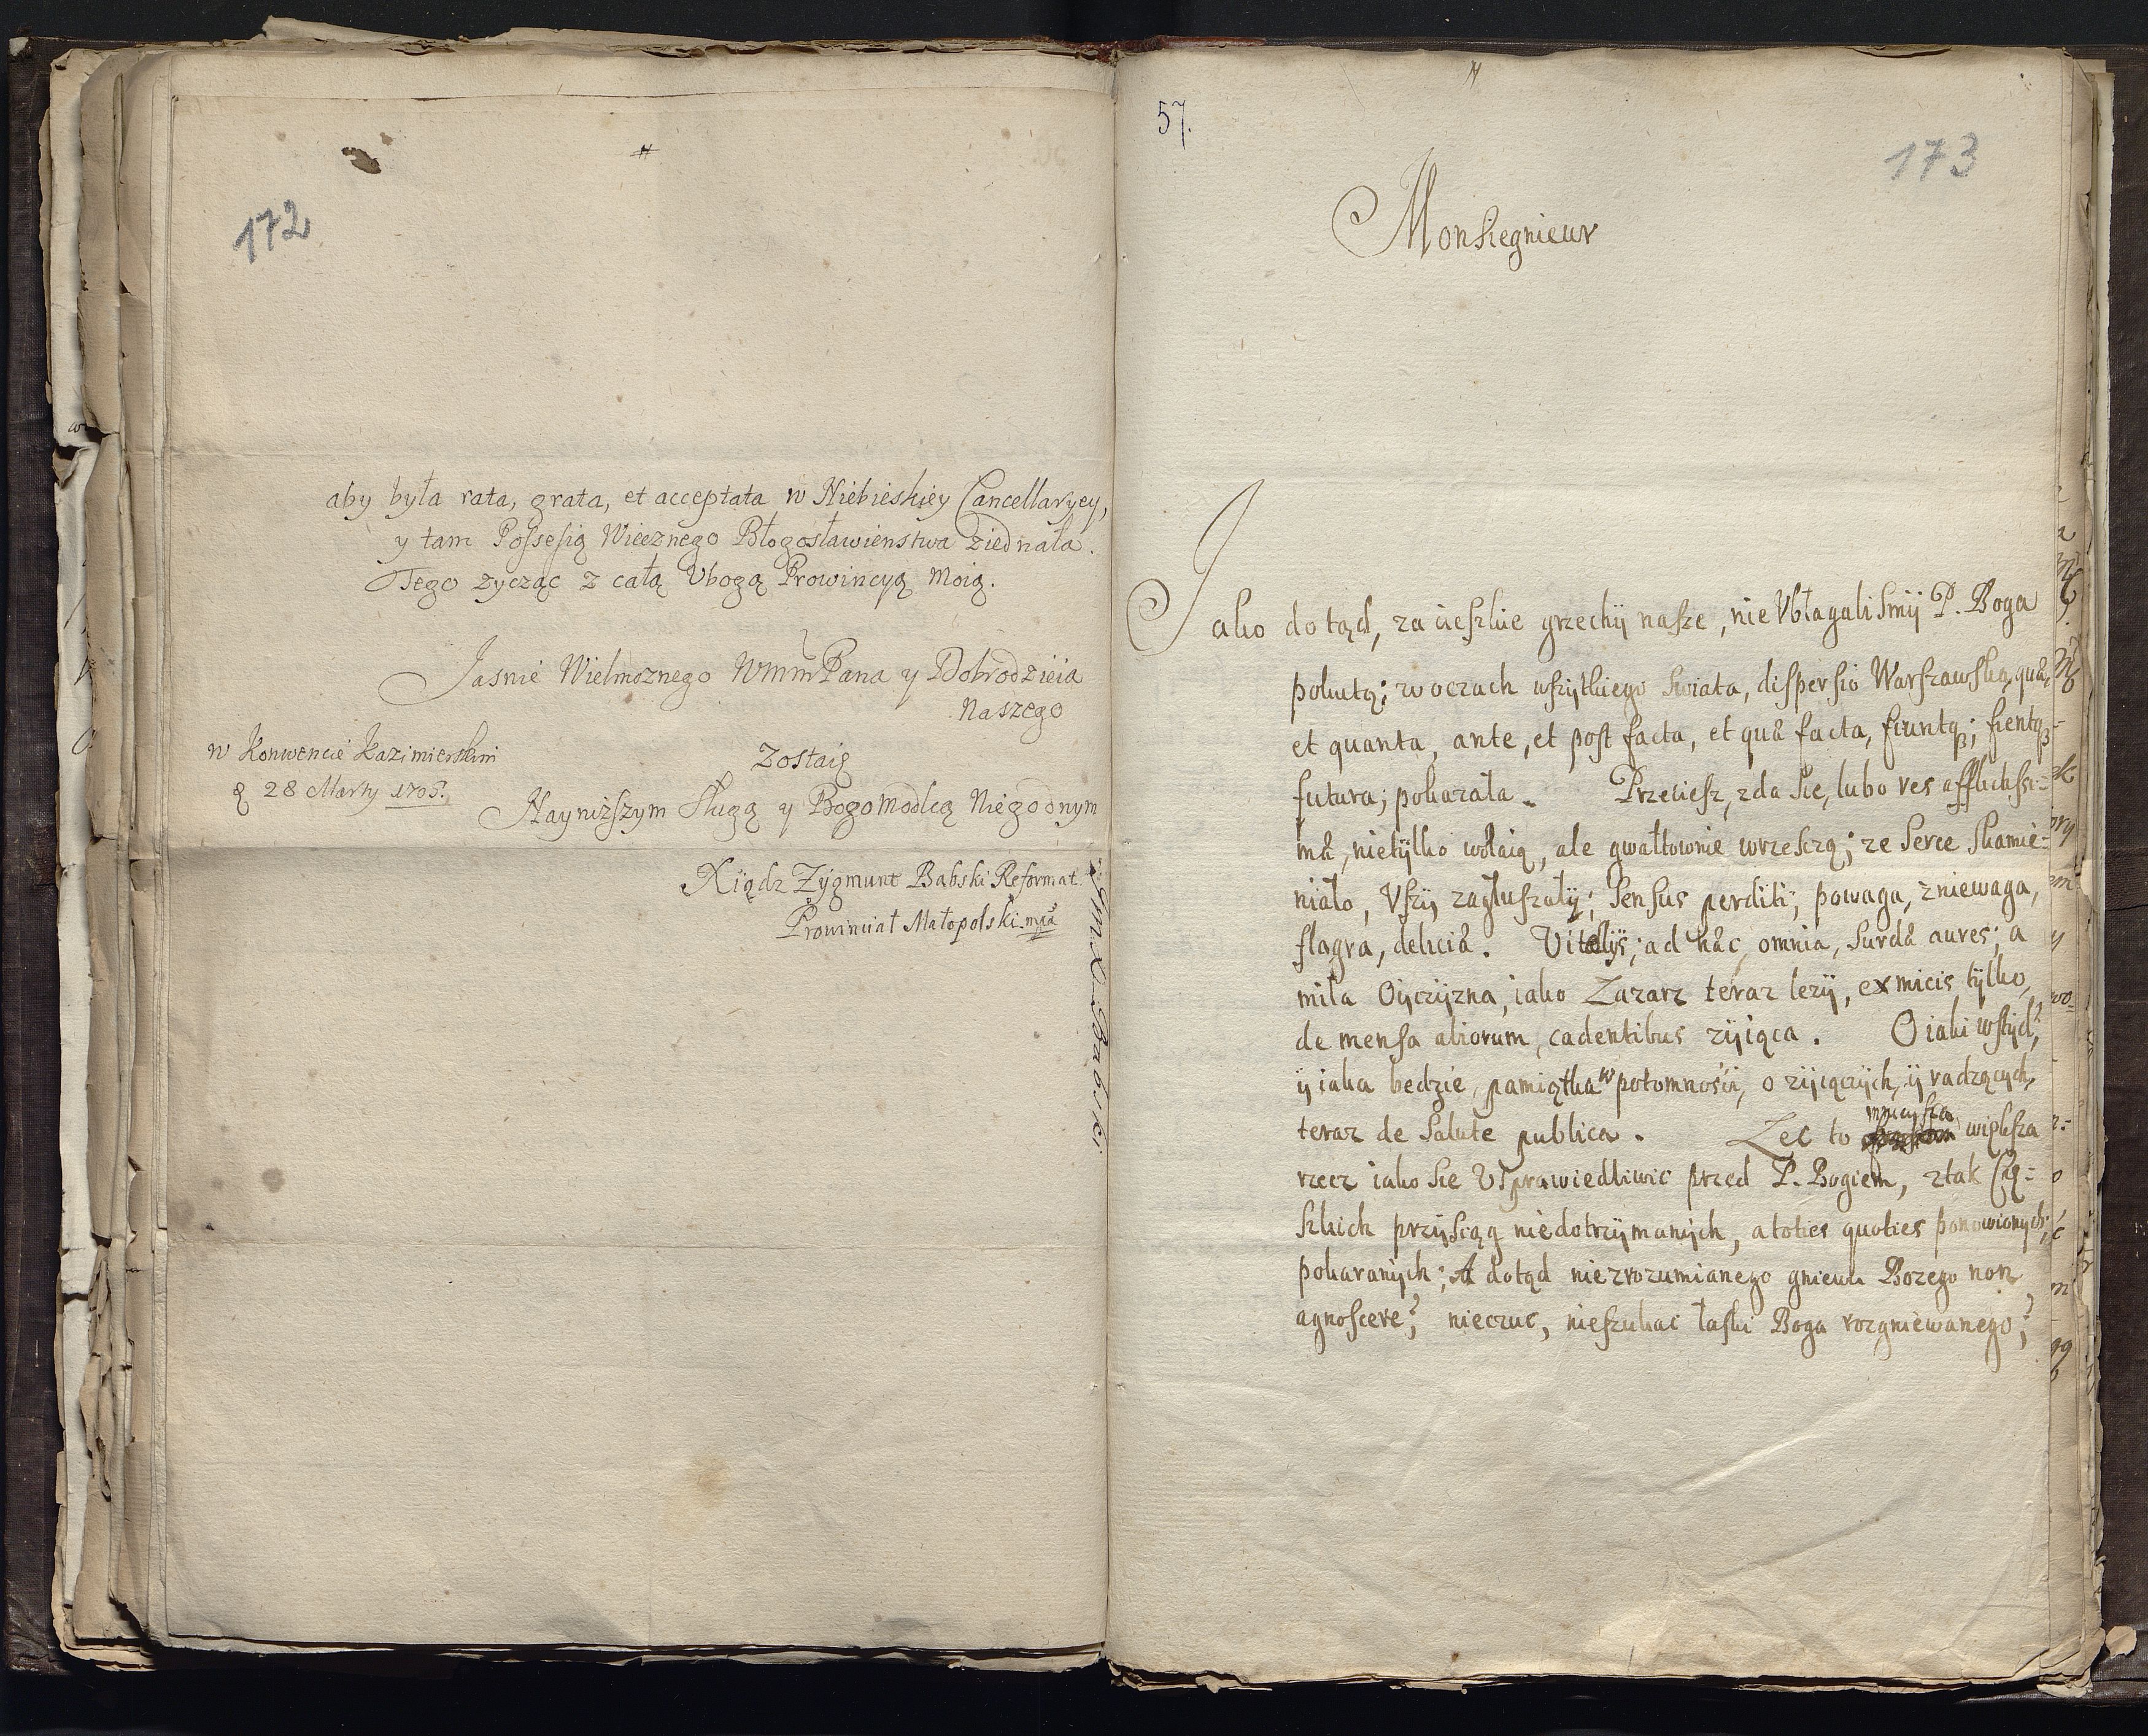 172
aby była rata, grata, et acceptata w Niebieskiey Cancellaryey,
y tam Possesią Wiecznego Błogosławienstwa ziednała.
Tego zycząc z całą Vbogą Prowincyą Moią.
Jasnie Wielmoznego WmmPana y Dobrodzieia
Naszego
w Konwencie Kazimierskim
zostaię
28 Marty 1705.
Nayniższym Sługą y Bogomodlcą Niegodnym
Xiądz Zygmunt Babski Reformat.
Prowinciał Małopolski mpa
X. Babski
57.
173
Monsiegnieur
Jako dotąd, za cieszkie grzechy nasze, nie Vbłagalismy P. Boga
pokutą; w oczach wszytkiego swiata, dispersio Warszawska, quæ,
et quanta, ante, et post facta, et quæ facta, fiuntq3; fientq3
futura; pokazała. Przeciesz, zda sie, lubo res afflictissi=
mæ, nietylko wołaią, ale gwałtownie wrzesczą; ze serce skamie=
niało, Vszy zagłuszały; sensus perditi; powaga, zniewaga,
flagra, deliciæ. Vitellÿs; ad hæc, omnia, surdæ aures; a
miła Oyczyzna, iako Zazarz teraz lezy, ex micis tylko,
de mensa aliorum, cadentibus zyiąca. O iaki wstyd,
y iaka bedzie, pamiątka w potomnosci, o zyiączych, y radzących,
teraz de salute publica. Lec to mnieysza wieksza
rzecz iako sie Vsprawiedliwic przed P. Bogiem, z tak Cię=
szkich przysciąg niedotrzymanych, a toties quoties ponowionych;
pokaranych; A dotąd niezrozumianego gniewu Bozego non
agnoscere? nieczuc, nieszukac łaski Boga rozgniewanego?